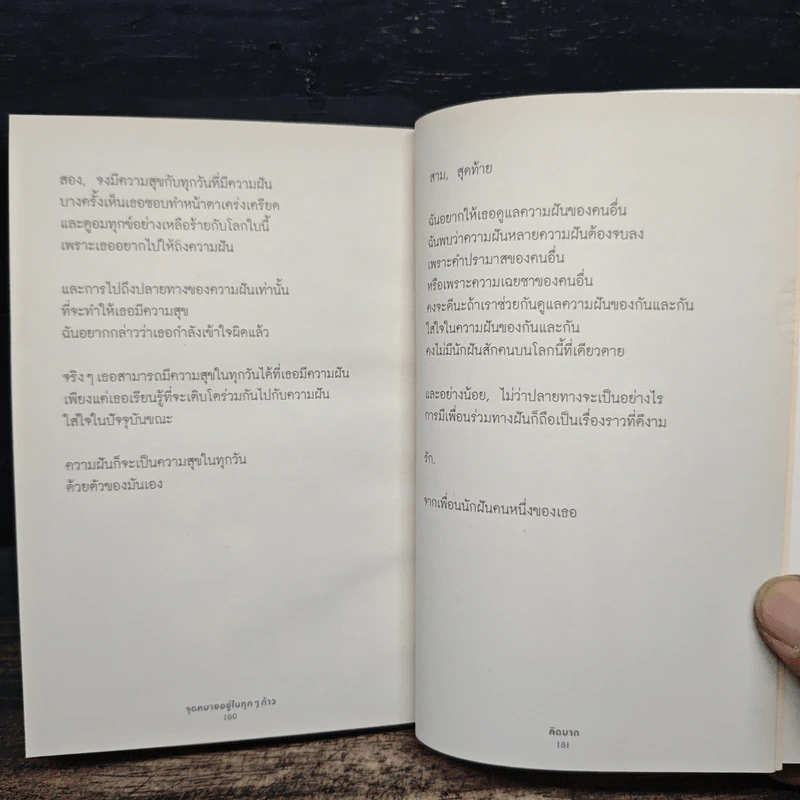 สอง, จงมีความสุขกับทุกวันที่มีความฝัน
บางครั้งเห็นเธอชอบทำหน้าตาเคร่งเครียด
และดูอมทุกข์อย่างเหลือร้ายกับโลกใบนี้
เพราะเธออยากไปให้ถึงความฝัน
และการไปถึงปลายทางของความฝันเท่านั้น
ที่จะทำให้เธอมีความสุข
ฉันอยากกล่าวว่าเธอกำลังเข้าใจผิดแล้ว
จริงๆ เธอสามารถมีความสุขในทุกวันได้ที่เธอมีความฝัน
เพียงแค่เธอเรียนรู้ที่จะเติบโตร่วมกันไปกับความฝัน
ใส่ใจในปัจจุบันขณะ
ความฝันก็จะเป็นความสุขในทุกวัน
ด้วยตัวของมันเอง
จุดหมายอยู่ในทุกๆ ก้าว
160
สาม, สุดท้าย
ฉันอยากให้เธอดูแลความฝันของคนอื่น
ฉันพบว่าความฝันหลายความฝันต้องจบลง
เพราะคำปรามาสของคนอื่น
หรือเพราะความเฉยชาของคนอื่น
คงจะดีนะถ้าเราช่วยกันดูแลความฝันของกันและกัน
ใส่ใจในความฝันของกันและกัน
คงไม่มีนักฝันสักคนบนโลกนี้ที่เดียวดาย
และอย่างน้อย, ไม่ว่าปลายทางจะเป็นอย่างไร
การมีเพื่อนร่วมทางฝันก็ถือเป็นเรื่องราวที่ดีงาม
รัก.
จากเพื่อนนักฝันคนหนึ่งของเธอ
คิดมาก
161